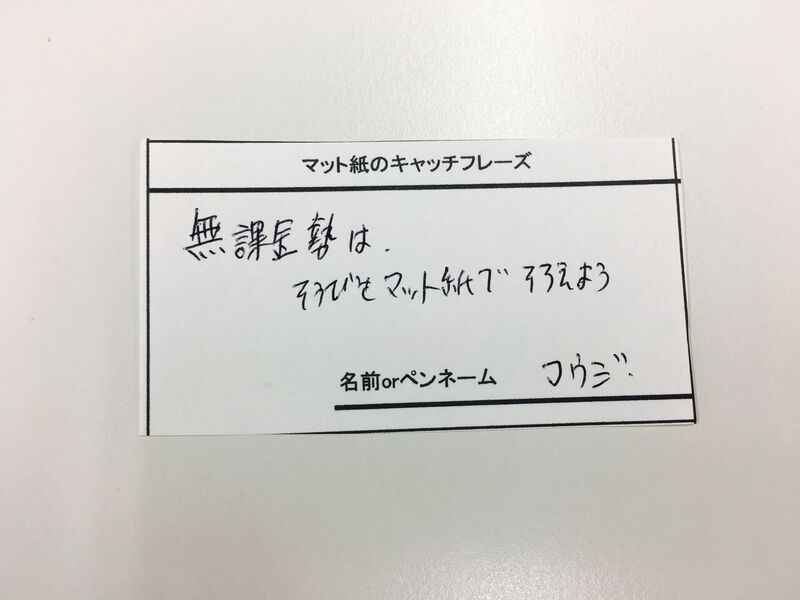 マット紙のキャッチフレーズ
無課金勢は、
そうびをマット紙で そろえよう
名前orペンネーム コウジ